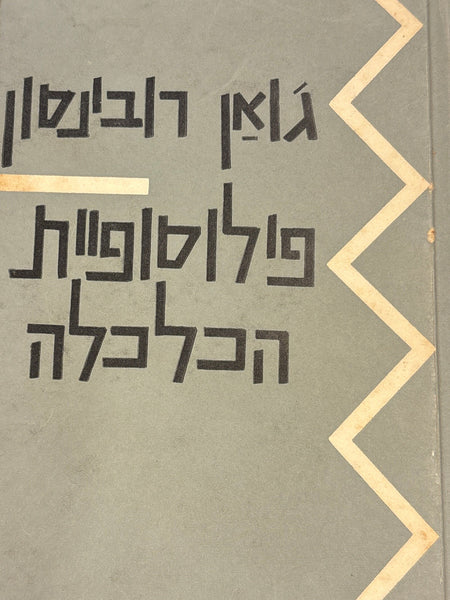 ג'וֹאַן רובינסון
פילוסופיית
הכלכלה